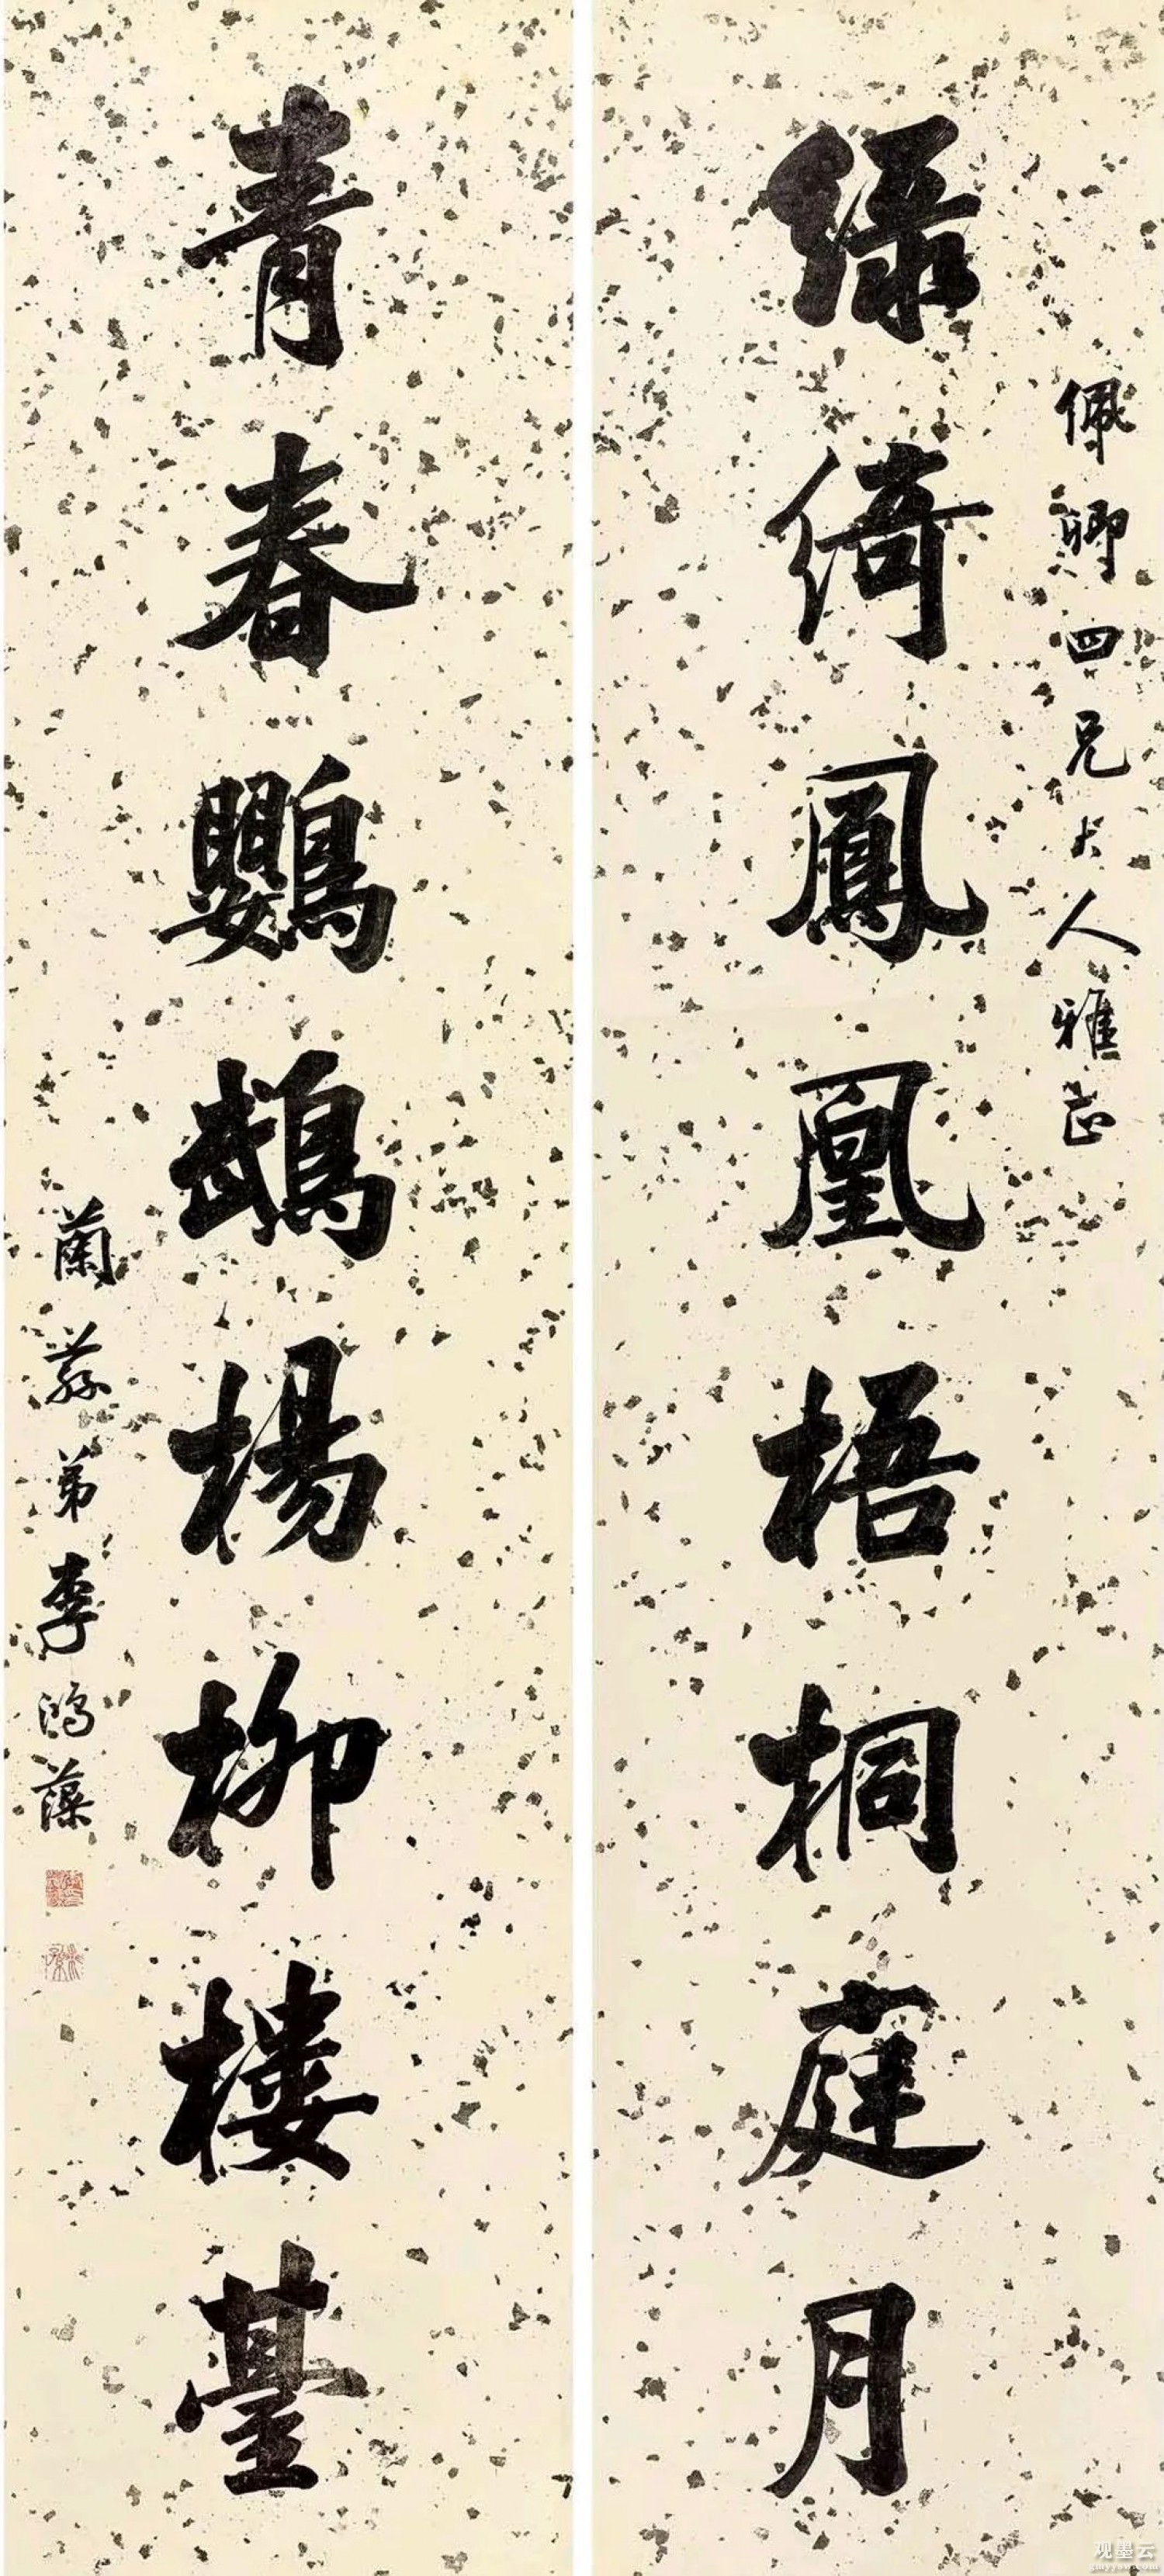 佩卿四兄大人雅正
綠綺鳳凰梧桐庭月
青春鸚鵡楊柳樓臺
蘭蓀弟李鴻藻
观墨云